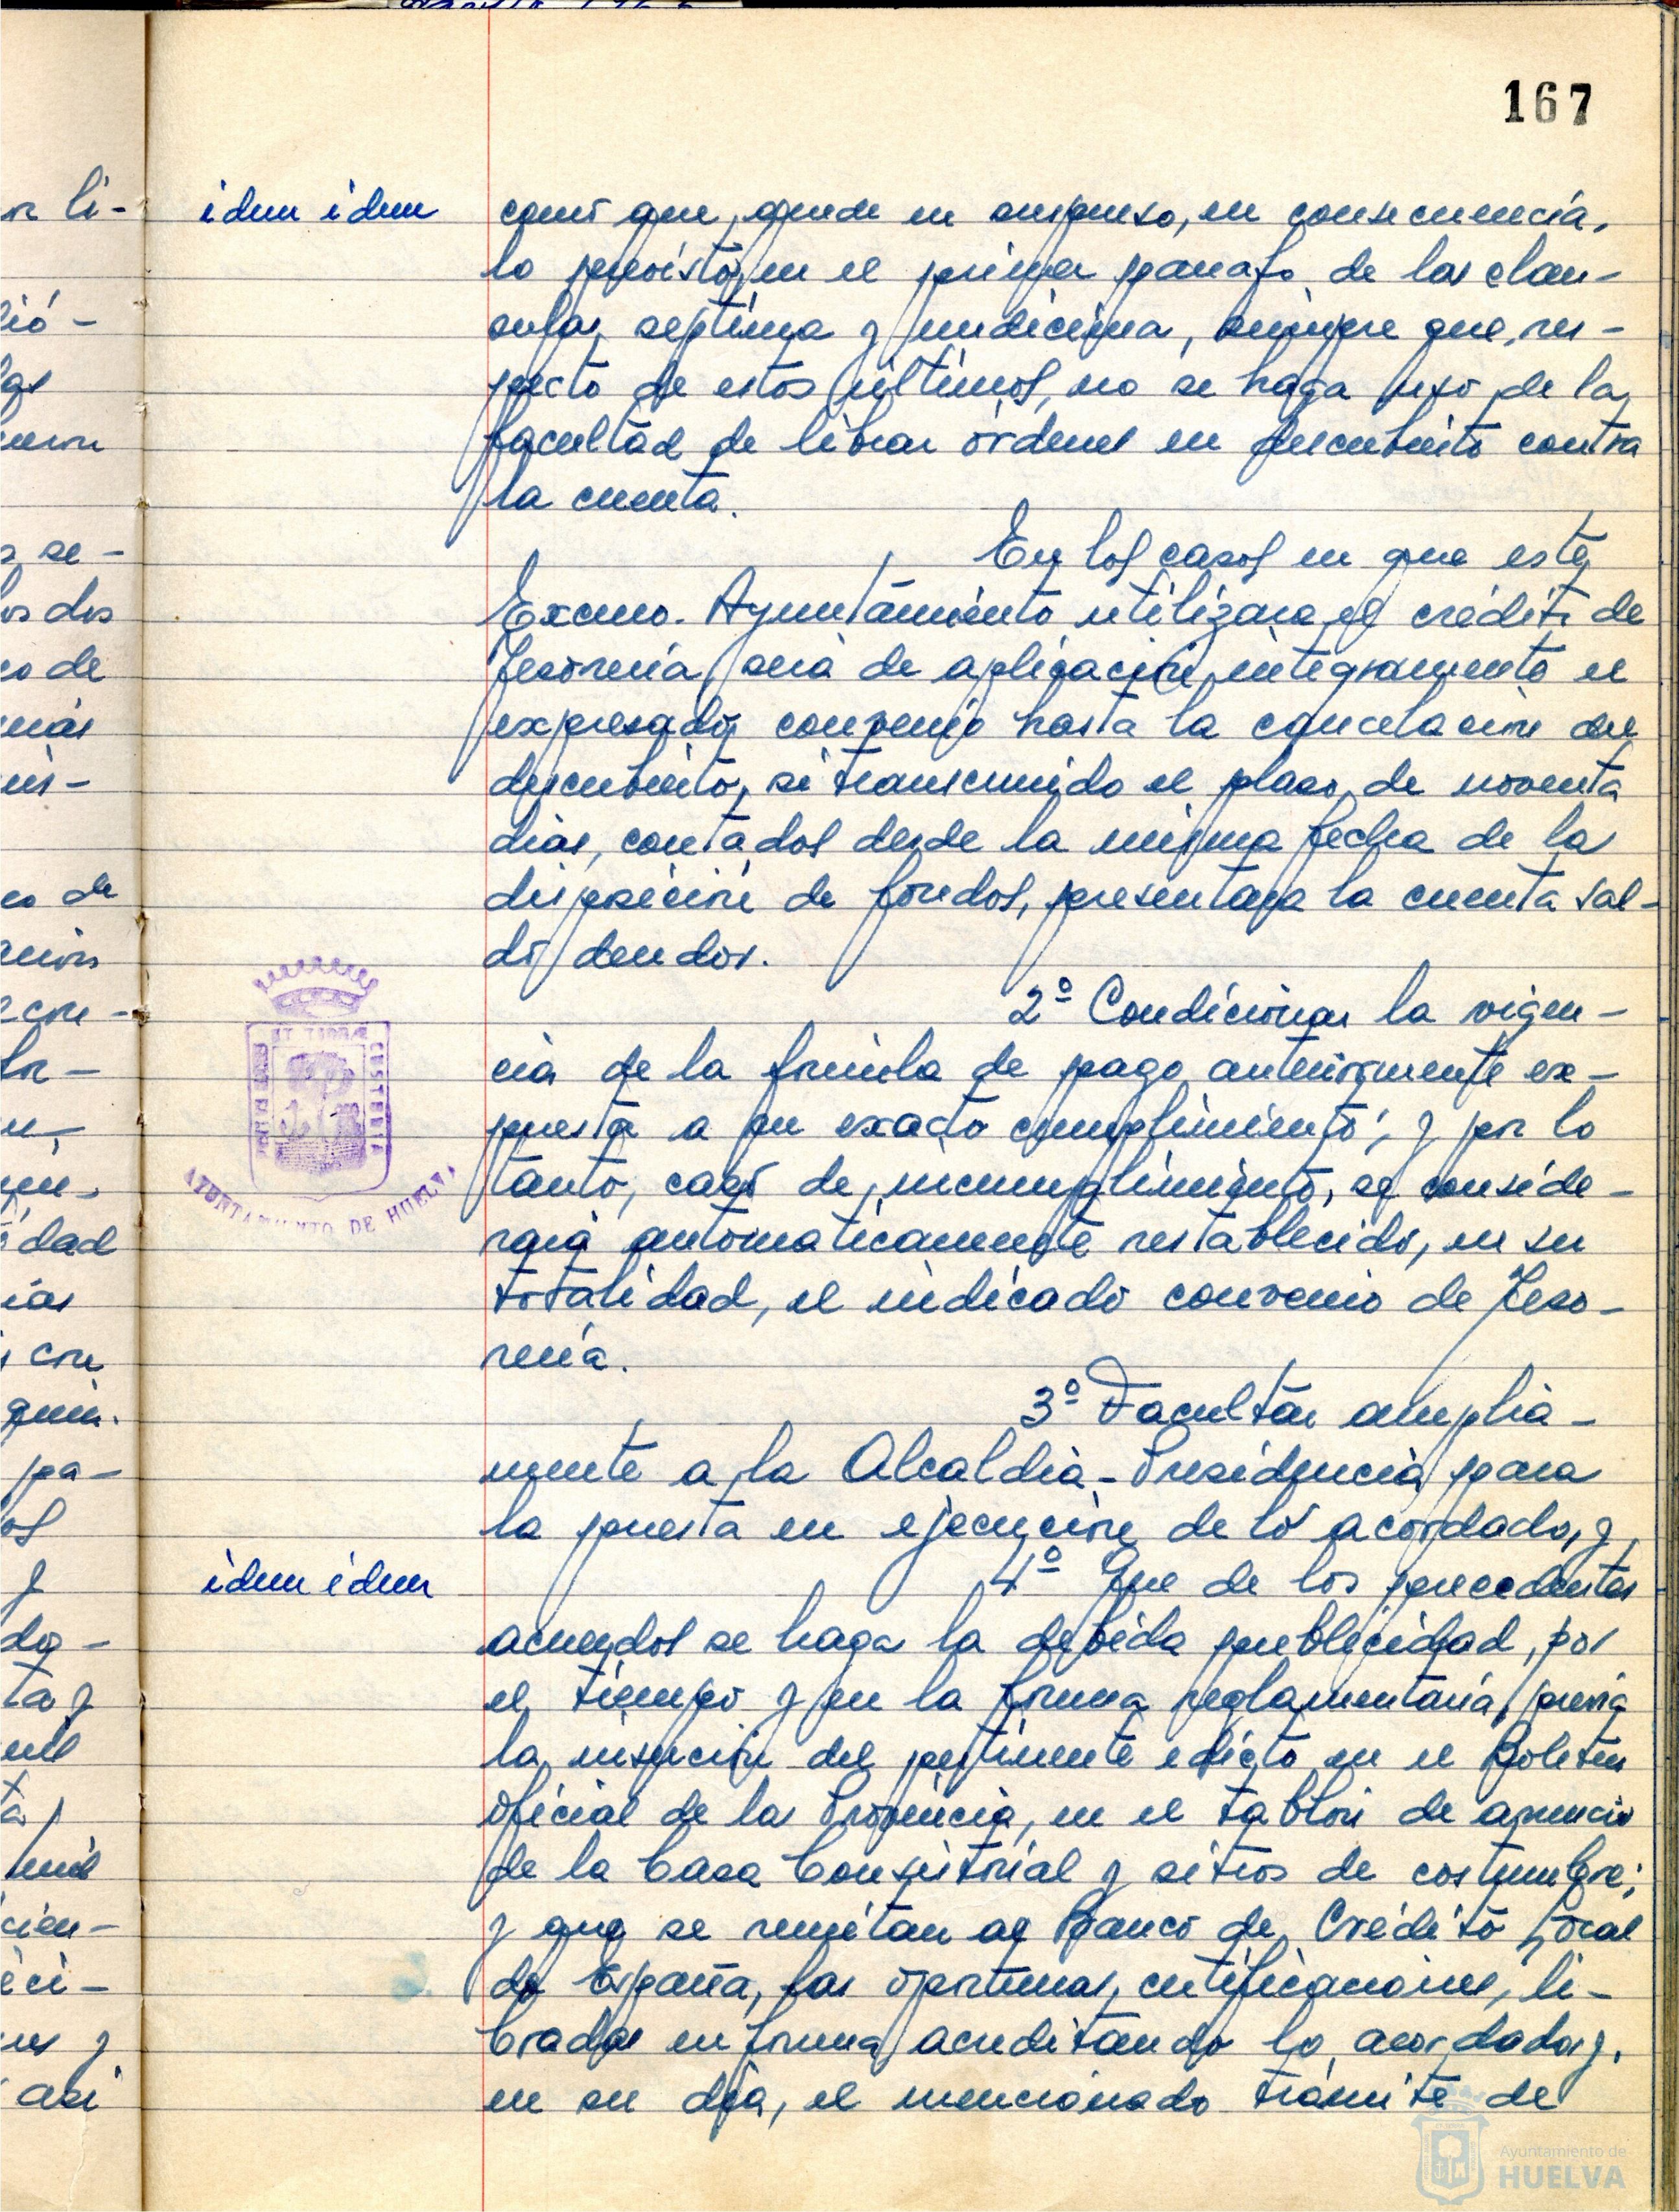 167
idem idem
como que, quede en suspenso, en consecuencia,
lo previsto, en el primer parrafo de las clau-
sulas septima y undécima, siempre que, res-
pecto de estos últimos, no se haga uso de la
facultad de librar órdenes en descubierto contra
la cuenta.
En los casos en que este
Excmo. Ayuntamiento utilizara el crédito de
Tesorería, será de aplicación, integramente el
expresado convenio hasta la cancelación del
descubierto, si transcurrido el plazo de noventa
días, contados desde la misma fecha de la
disposición de fondos, presentara la cuenta sal-
do deudor.
2º Condicionar la vigen-
cia de la fórmula de pago anteriormente ex-
puesta a su exacto cumplimiento; y por lo
tanto, caso de incumplimiento, se conside-
rará automaticamente restablecido, en su
totalidad, el indicado convenio de Teso-
rería.
3º Facultar amplia-
mente a la Alcaldía-Presidencia para
la puesta en ejecución de lo acordado, y
idem idem
4º Que de los precedentes
acuerdos se haga la debida publicidad, por
el tiempo y en la forma reglamentaria, previa
la inserción del pertinente edicto en el Boletin
Oficial de la Provincia, en el tablón de anuncio
de la Casa Consistorial y sitios de costumbre;
y que se remitan al Banco de Crédito Local
de España, las oportunas, certificaciones, li-
bradas en forma, acreditando lo acordado, y,
en su día, el mencionado trámite de
AYUNTAMIENTO DE HUELVA
Ayuntamiento de
HUELVA